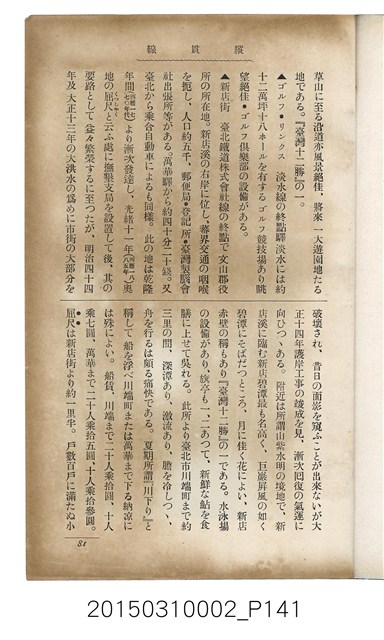 線貫縱
草山に至る沿道亦風景絕佳、將來一大遊園地たる
地である。『臺灣十二勝』の一。
▲ゴルフ・リンクス 淡水線の終點驛淡水には約
十二萬坪十八ホールを有するゴルフ競技場あり眺
望絕佳・ゴルフ俱樂部の設備がある。
▲新店街 臺北鐵道株式會社線の終點で文山郡役
所の所在地。新店溪の右岸に位し、蕃界交通の咽喉
を扼し、人口約五千、郵便局・登記所・臺灣製腦會
社出張所等がある。萬華驛から約四十分二十錢。又
臺北から乘合自動車によるも同樣。此の地は乾隆
年間より漸次發達し、光緖十一年奧
地の屈尺と云ふ處に撫墾支局を設置して後、其の
要路として益々繁榮するに至つたが、明治四十四
年及大正十三年の大洪水の爲めに市街の大部分を
破壞され、昔日の面影を窺ふことが出來ないが大
正十四年護岸工事の竣成を見、漸次囘復の氣運に
向ひつゝある。附近は所謂山紫水明の境地で、新
店溪に臨む新店碧潭最も名高く、巨巖屏風の如く
碧潭にそばだつところ、月に佳く花によい、新店
赤壁の稱もあり『臺灣十二勝』の一である。水泳場
の設備があり、旗亭も一、二あつて、新鮮な鮎を食
膳に上せて吳れる。此所より臺北市川端町まで約
三里の間、深潭あり、激流あり、膽を冷しつゝ、
舟を行るは頗る痛快である。夏期所謂『川下り』と
稱して船を浮べ川端町または萬華まで下る納涼に
は殊によい。船賃、川端まで二十人乘拾圓、十人
乘七圓、萬華まで二十人乘拾五圓、十人乘拾參圓。
屈尺は新店街より約二里半。戶數百戶に滿たぬ小
81
20150310002_P141